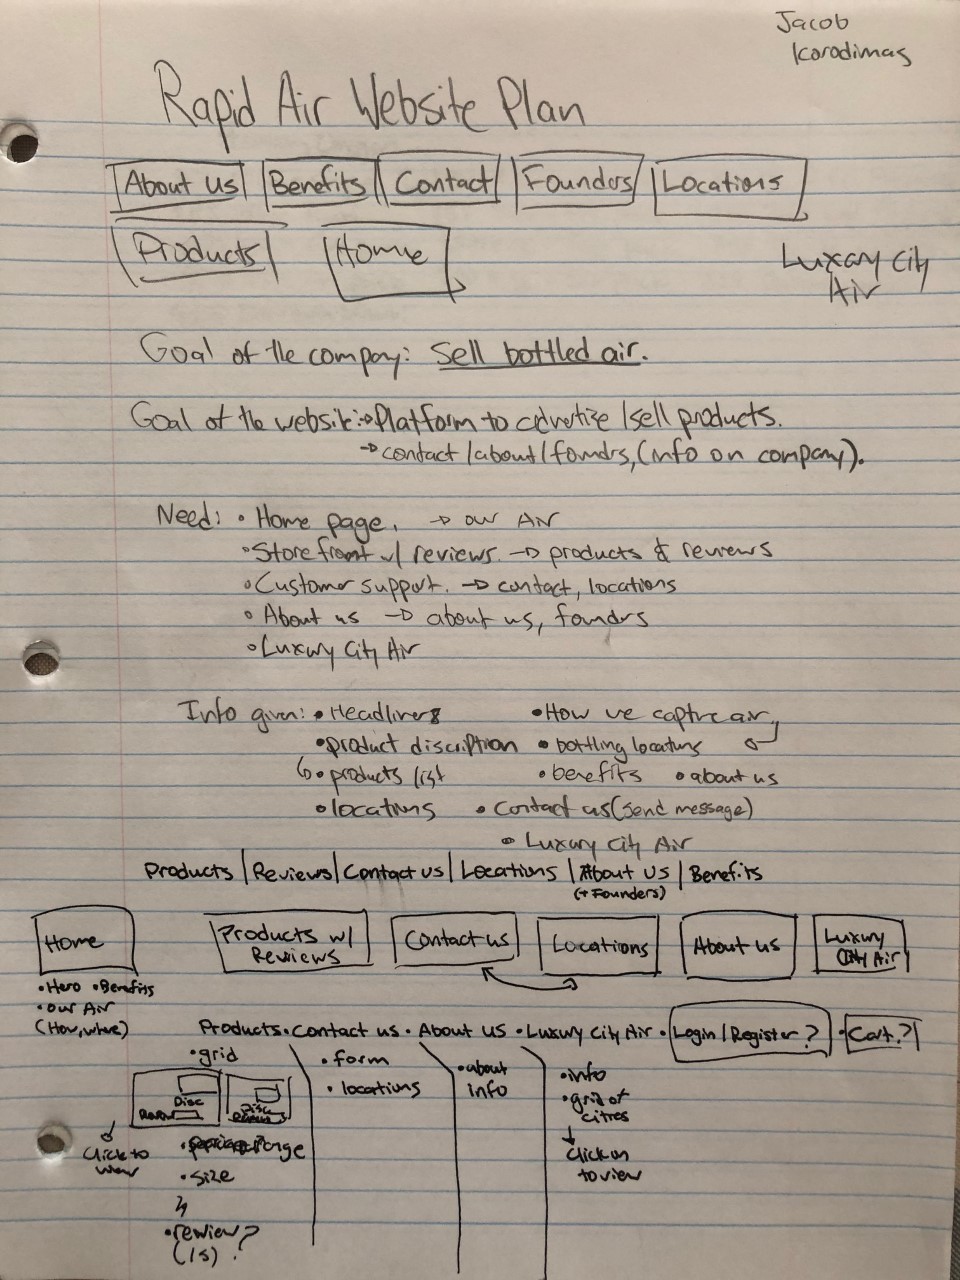 Jacob
Karadimas
Rapid Air Website Plan
About Us Benefits Contact Foundrs Locations
Products Home
Luxary City
Air
Goal of the company: Sell bottled air.
Goal of the website: → Platform to advertize / sell products.
→ contact / about / foundrs, (info on company).
Need: • Home page. → our Air
• Store front w/ reviews. → products & reviews
• Customer support. → contact, locations
• About us → about us, foundrs
• Luxury City Air
Info given: • Headliners • How we captre air,
• product discription • bottling locatins
• products list • benefits • about us
• locations • Contact us (send message)
• Luxury City Air
Products | Reviews | Contact us | Locations | About Us | Benefits
(+ Founders)
Home Products w/ Reviews Contact us Locations About us Luxury City Air
• Hero • Benefits
• our Air
(How, where)
Products • Contact us • About us • Luxury City Air • Login / Register? • Cart?
• grid • form • about info • info
• locations • grid of cities
Disc Disc
Click to view
Click on to view
• size
• review?
(1s)